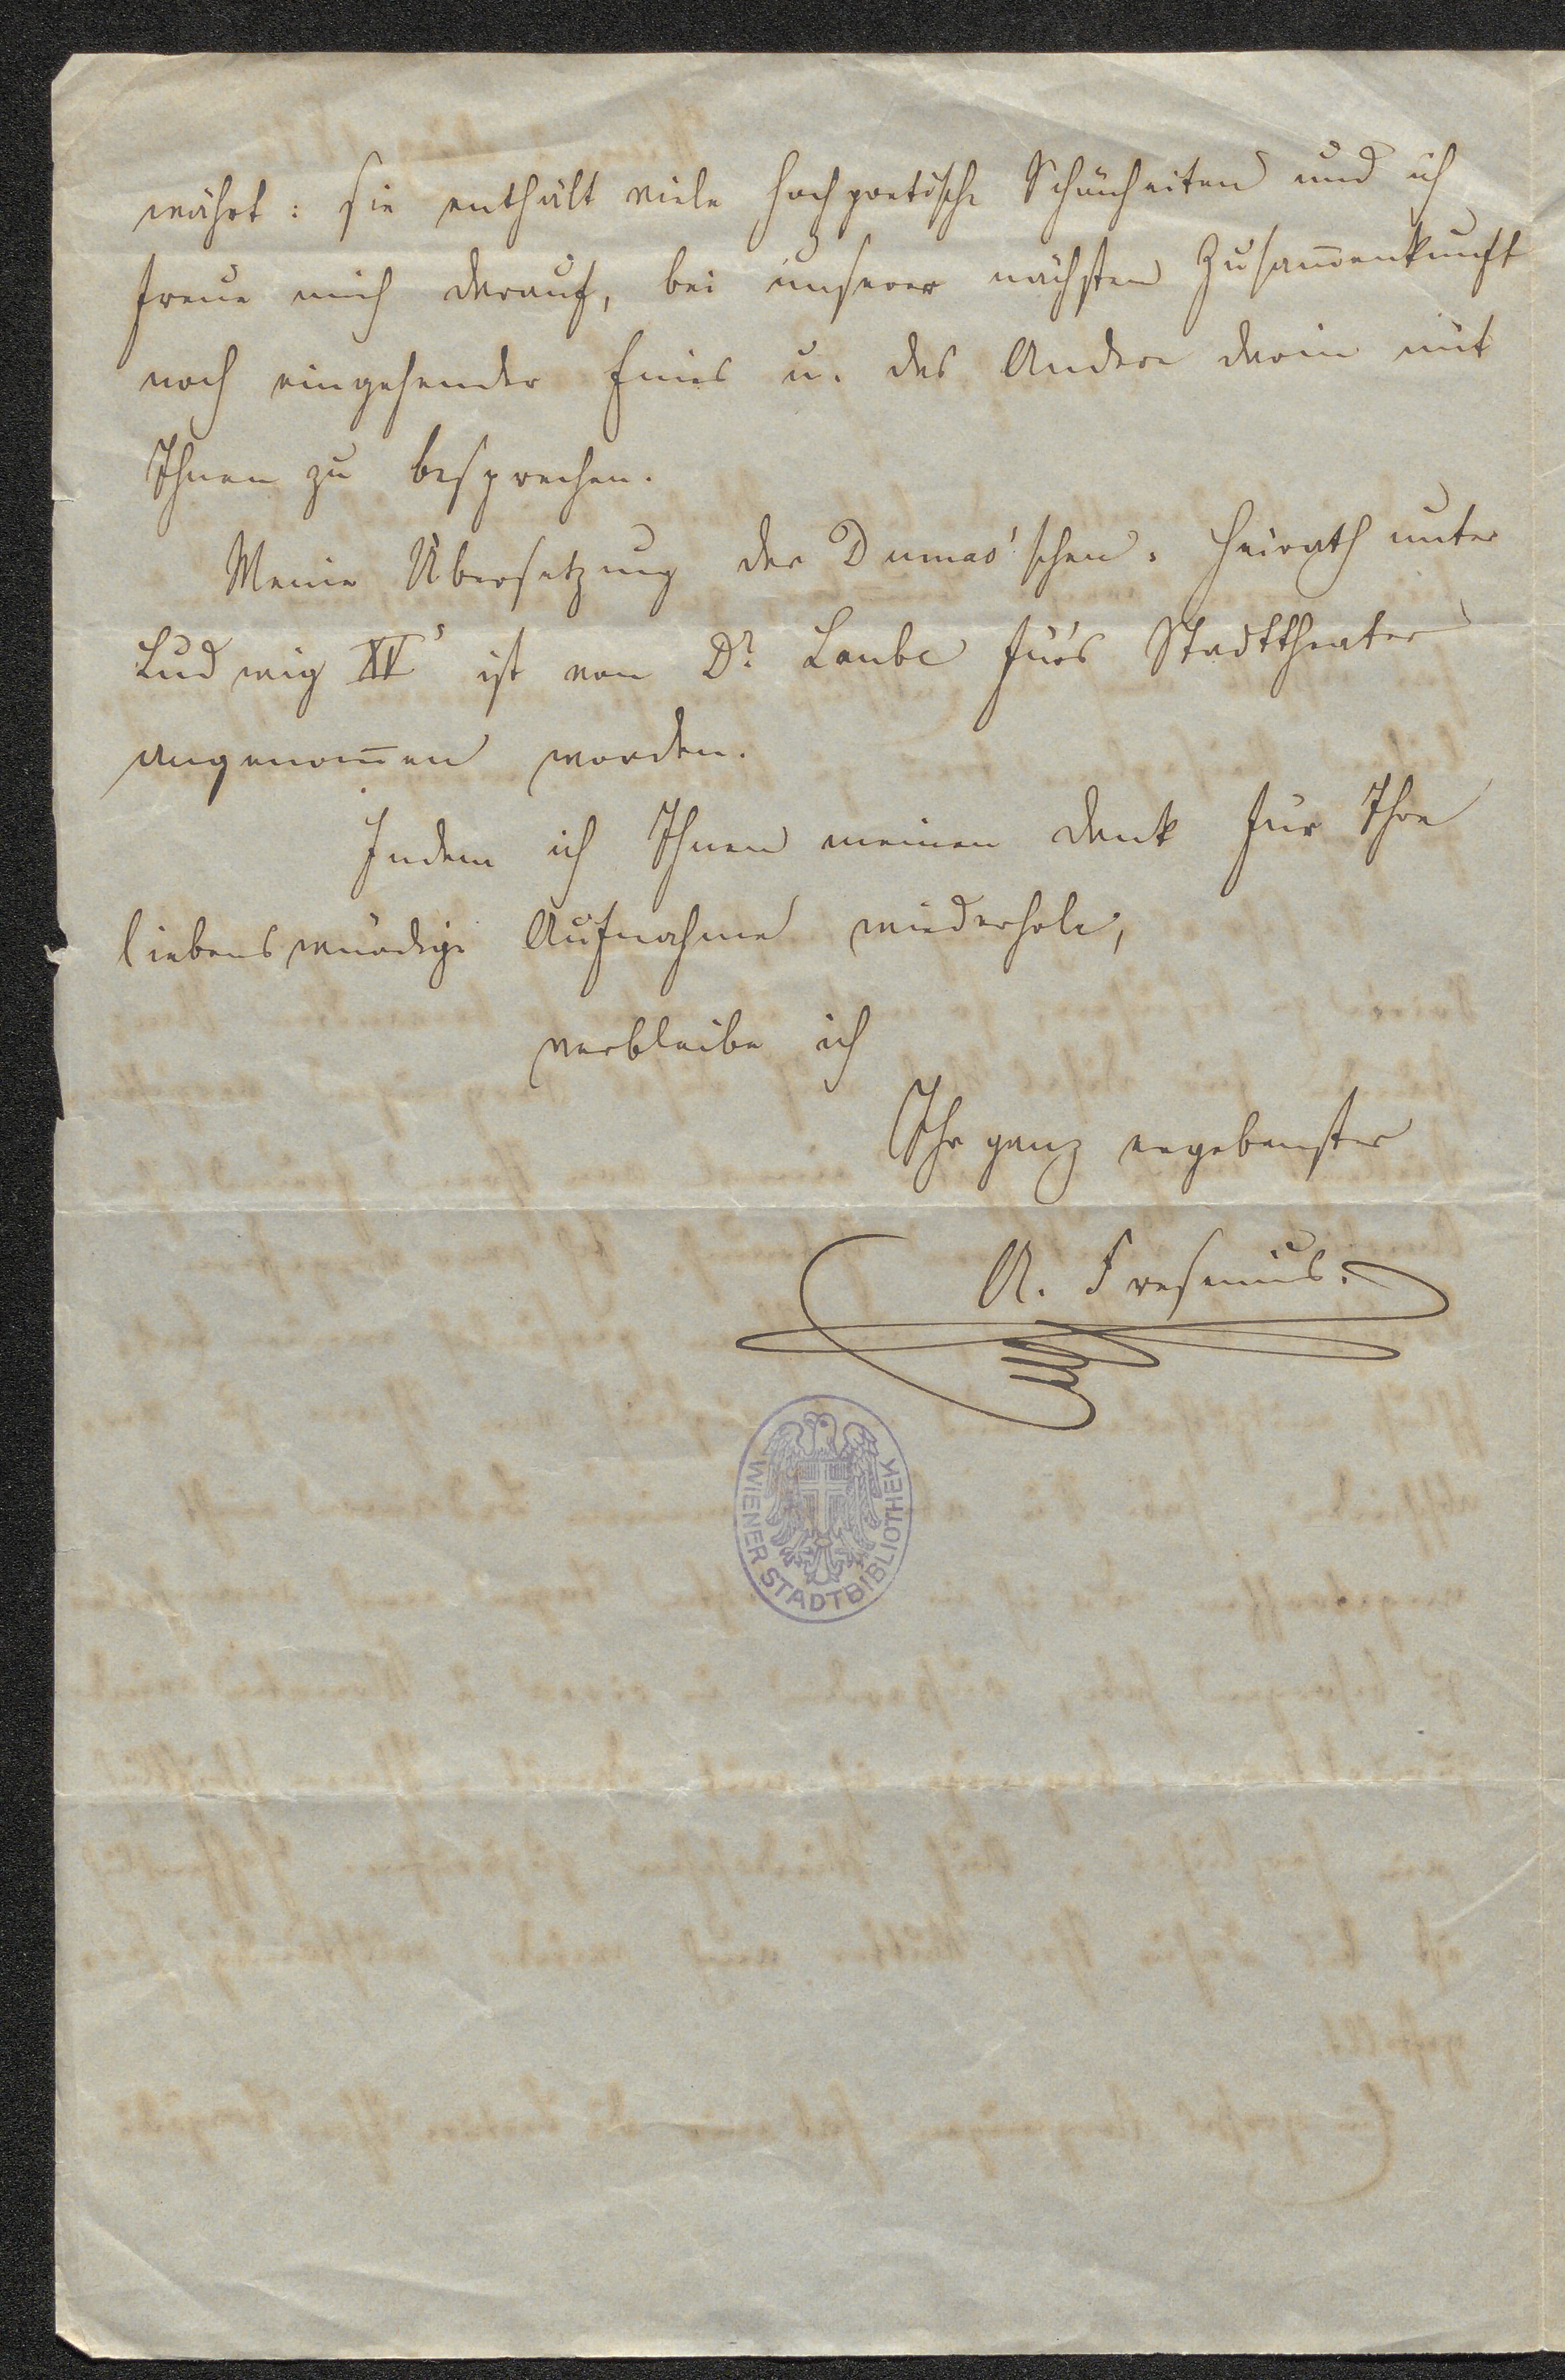 währt: sie enthält viele hochpoetische Schönheiten und ich
freue mich darauf, bei unserer nächsten Zusam̅enkunft
noch eingehender Eines u. das Andere darin mit
Ihnen zu besprechen.
Meine Übersetzung der Dumas'schen „Heirath unter
Ludwig XV“ ist von Dr. Laube für's Stadttheater
angenom̅en worden.
Indem ich Ihnen meinen Dank für Ihre
liebenswürdige Aufnahme wiederhole,
verbleibe ich
Ihr ganz ergebenster
A. Fresenius.
WIENER STADTBIBLIOTHEK